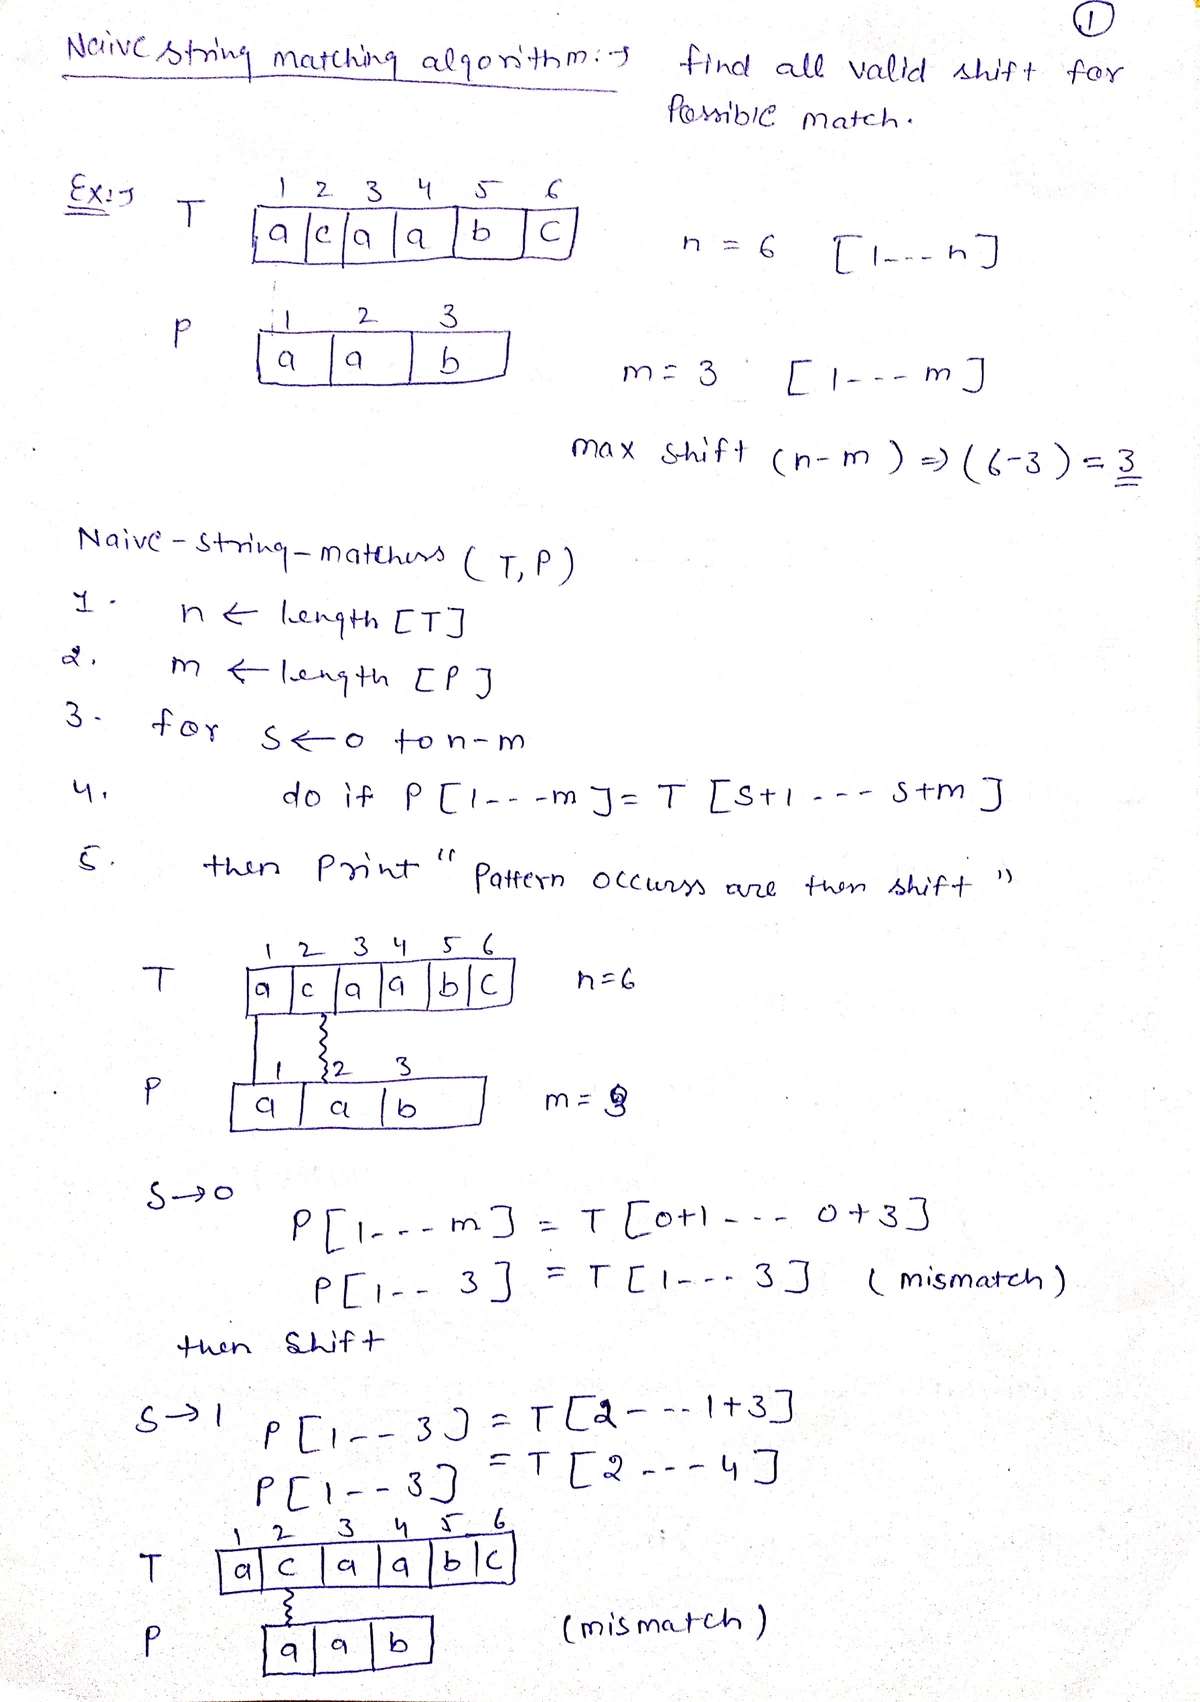 ①
Naive string matching algorithm:→ find all valid shift for
Possible match.
Ex:→
1 2 3 4 5 6
T a c a a b c
n = 6 [1---n]
1 2 3
P a a b
m = 3 [1---m]
max shift (n-m) ⇒ (6-3) = 3
Naive-string-matchers (T, P)
1. n ← length [T]
2. m ← length [P]
3. for s ← 0 to n-m
4. do if P [1---m] = T [S+1---S+m]
5. then Print "Pattern occurss are then shift"
1 2 3 4 5 6
T a c a a b c n=6
1 2 3
P a a b m = 3
S→0
P[1---m] = T [0+1---0+3]
P[1--3] = T [1---3] (mismatch)
then shift
S→1 P[1--3] = T[2---1+3]
P[1--3] = T [2---4]
1 2 3 4 5 6
T a c a a b c
P a a b (mismatch)